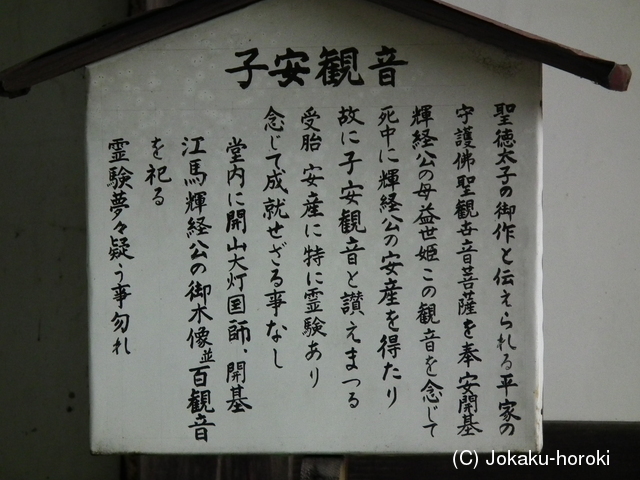 子安観音
聖徳太子の御作と伝えられる平家の
守護佛聖観世音菩薩を奉安開基
輝経公の母益世姫この観音を念じて
死中に輝経公の安産を得たり
故に子安観音と讃えまつる
受胎 安産に特に霊験あり
念じて成就せざる事なし
堂内に開山大灯国師、開基
江馬輝経公の御木像並百観音
を祀る
霊験夢々疑う事勿れ
(C) Jokaku-horoki